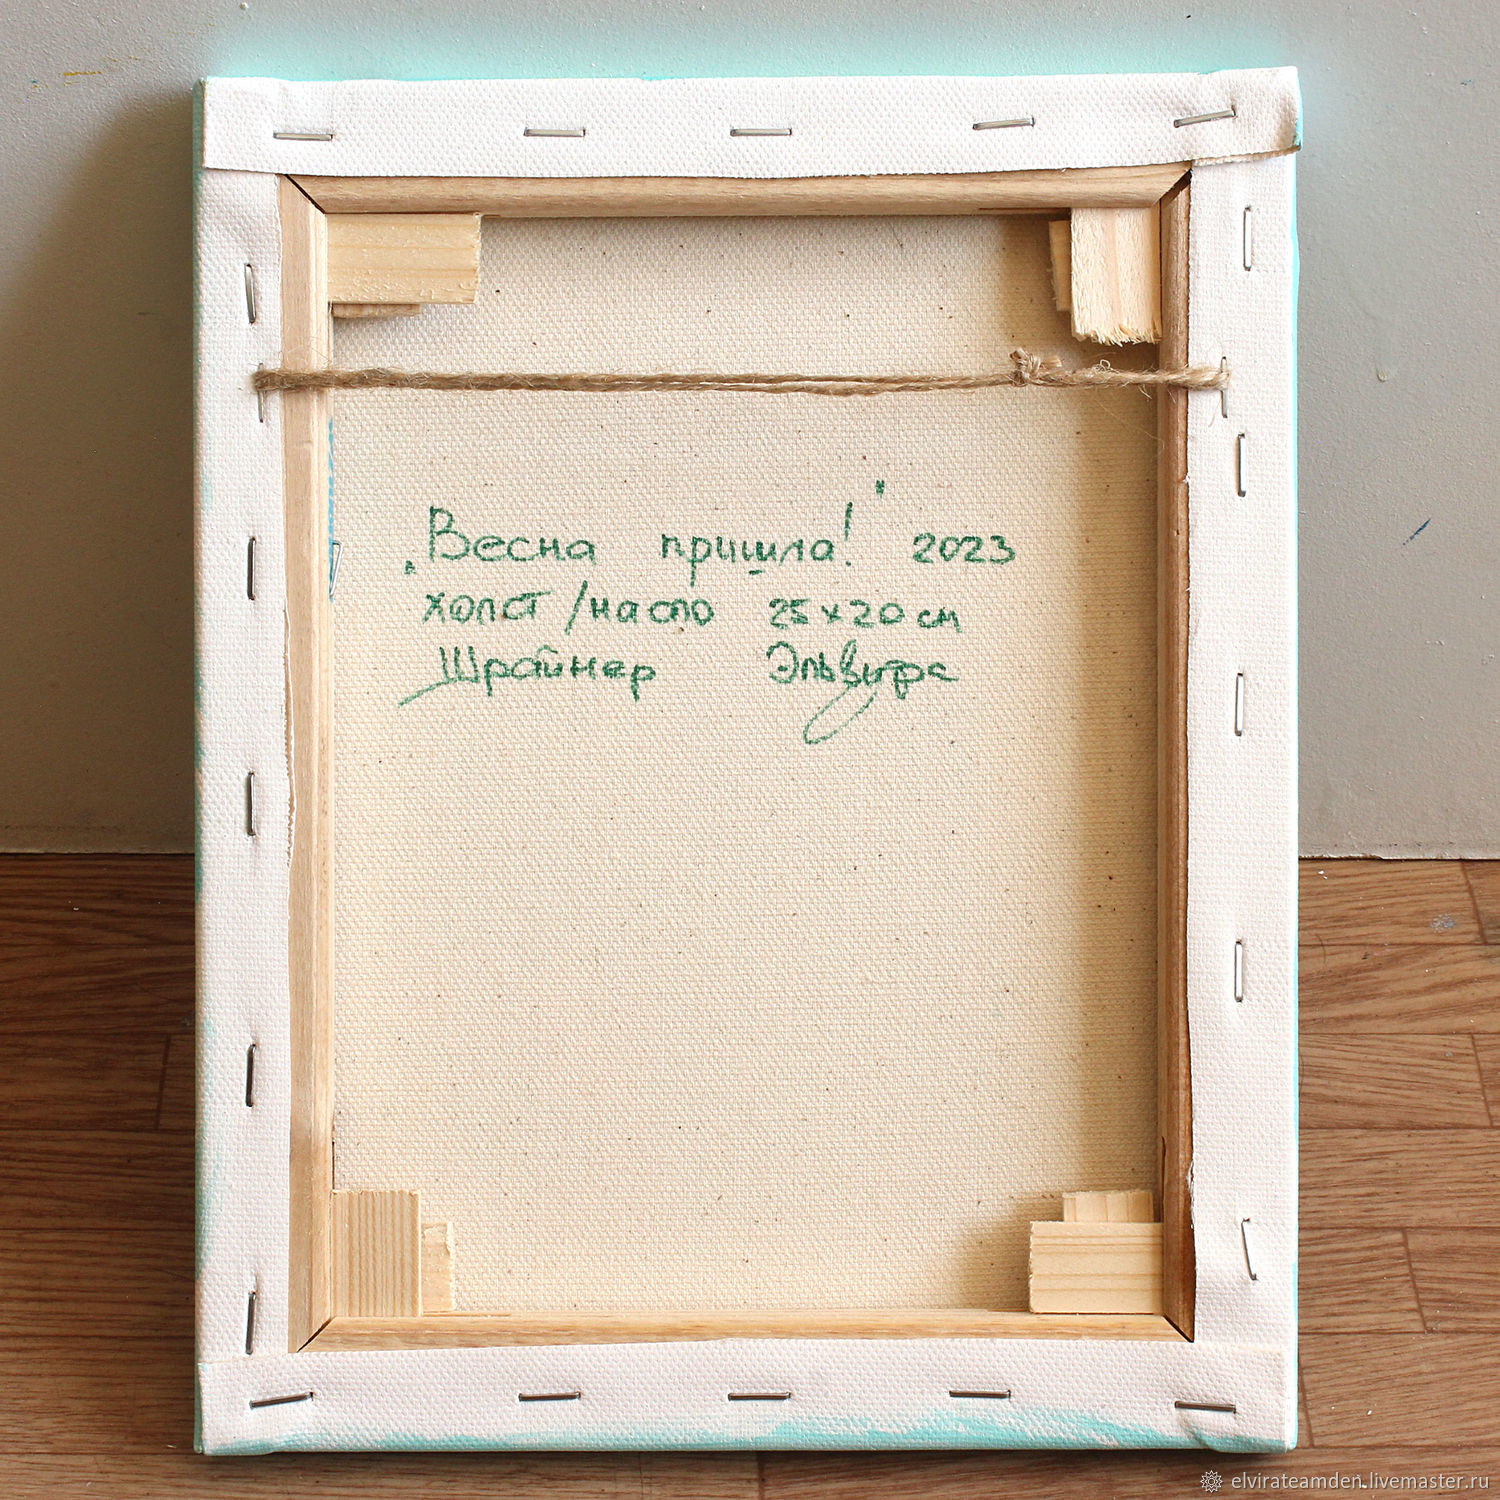 „Весна пришла!" 2023
холст/масло 25х20 см
Шрайнер Эльвира
elvirateamden.livemaster.ru